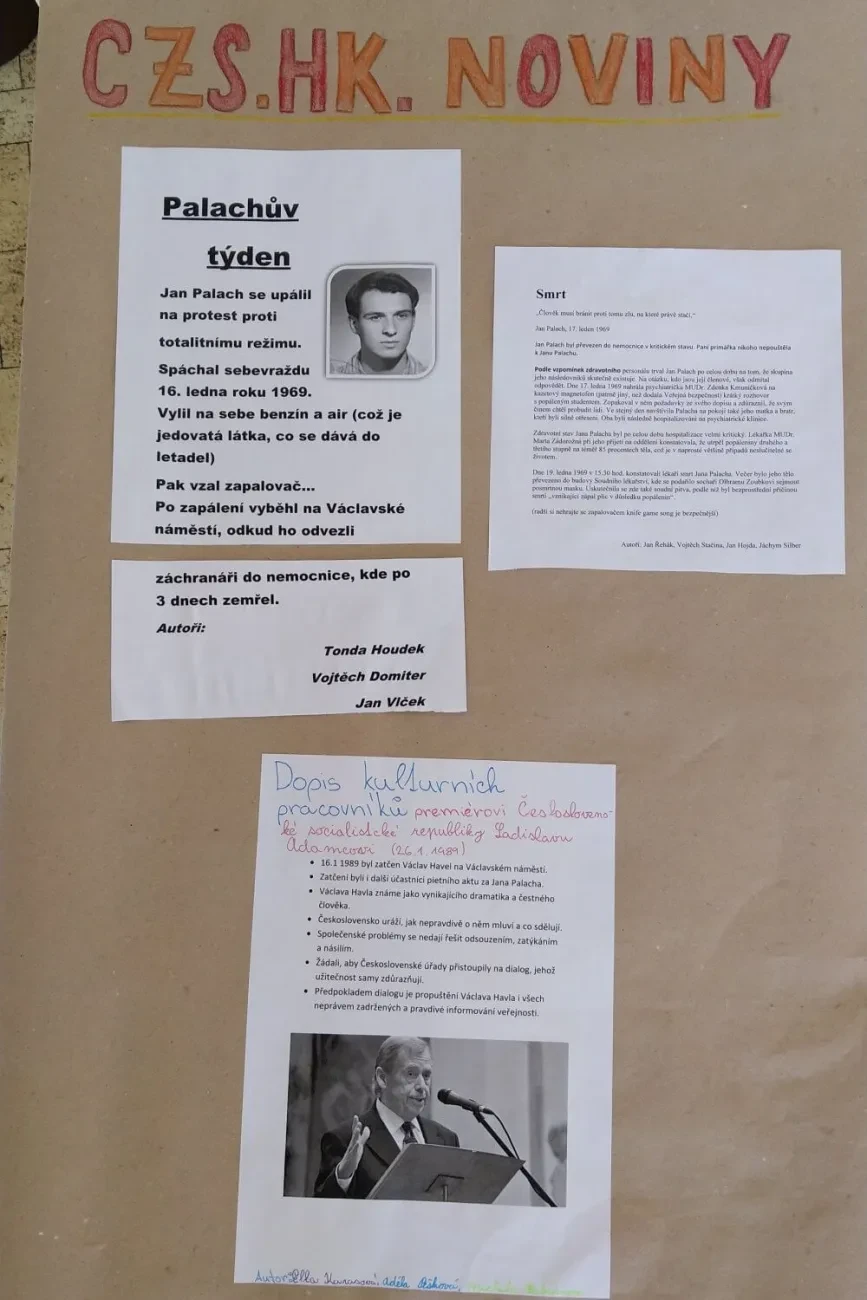 CZS.HK. NOVINY
Palachův
týden
Jan Palach se upálil
na protest proti
totalitnímu režimu.
Spáchal sebevraždu
16. ledna roku 1969.
Vylil na sebe benzín a air (což je
jedovatá látka, co se dává do
letadel)
Pak vzal zapalovač...
Po zapálení vyběhl na Václavské
náměstí, odkud ho odvezli
záchranáři do nemocnice, kde po
3 dnech zemřel.
Autoři:
Tonda Houdek
Vojtěch Domiter
Jan Vlček
Smrt
„Člověk musí bránit proti tomu zlu, na které právě stačí.“
Jan Palach, 17. leden 1969
Jan Palach byl převezen do nemocnice v kritickém stavu. Paní primářka nikoho nepouštěla
k Janu Palachu.
Podle vzpomínek zdravotního personálu trval Jan Palach po celou dobu na tom, že skupina
jeho následovníků skutečně existuje. Na otázku, kdo jsou její členové, však odmítal
odpovědět. Dne 17. ledna 1969 nahrála psychiatrička MUDr. Zdenka Kmuníčková na
kazetový magnetofon (patrně jiný, než dodala Veřejná bezpečnost) krátký rozhovor
s popáleným studentem. Zopakoval v něm požadavky ze svého dopisu a zdůraznil, že svým
činem chtěl probudit lidi. Ve stejný den navštívila Palacha na pokoji také jeho matka a bratr,
kteří byli silně otřeseni. Oba byli následně hospitalizováni na psychiatrické klinice.
Zdravotní stav Jana Palacha byl po celou dobu hospitalizace velmi kritický. Lékařka MUDr.
Marta Zádorožná při jeho přijetí na oddělení konstatovala, že utrpěl popáleniny druhého a
třetího stupně na téměř 85 procentech těla, což je v naprosté většině případů neslučitelné se
životem.
Dne 19. ledna 1969 v 15.30 hod. konstatovali lékaři smrt Jana Palacha. Večer bylo jeho tělo
převezeno do budovy Soudního lékařství, kde se podařilo sochaři Olbramu Zoubkovi sejmout
posmrtnou masku. Uskutečnila se zde také soudní pitva, podle níž byl bezprostřední příčinou
smrti „vznikající zápal plic v důsledku popálenin“.
(radši si nehrajte se zapalovačem knife game song je bezpečnější)
Autoři: Jan Řehák, Vojtěch Stačina, Jan Hojda, Jáchym Silber
Dopis kulturních
pracovníků premiérovi Českosloven-
ké socialistcké republiky Ladislavu
Adamcovi (26.1.1989)
• 16.1 1989 byl zatčen Václav Havel na Václavském náměstí.
• Zatčeni byli i další účastníci pietního aktu za Jana Palacha.
• Václava Havla známe jako vynikajícího dramatika a čestného
člověka.
• Československo uráží, jak nepravdivě o něm mluví a co sdělují.
• Společenské problémy se nedají řešit odsouzením, zatýkáním
a násilím.
• Žádali, aby Československé úřady přistoupily na dialog, jehož
užitečnost samy zdůrazňují.
• Předpokladem dialogu je propuštění Václava Havla i všech
neprávem zadržených a pravdivé informování veřejnosti.
Autor: Ella Karasová, Adéla